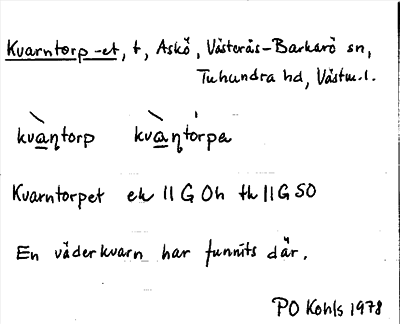 Kvarntorp -et, t, Askö, Västerås-Barkarö sn,
Tuhundra hd, Västm. l.
kvàṇtorp kvàṇtórpa
Kvarntorpet ek 11 G Oh tk 11 G SO
En väderkvarn har funnits där.
PO Kohls 1978